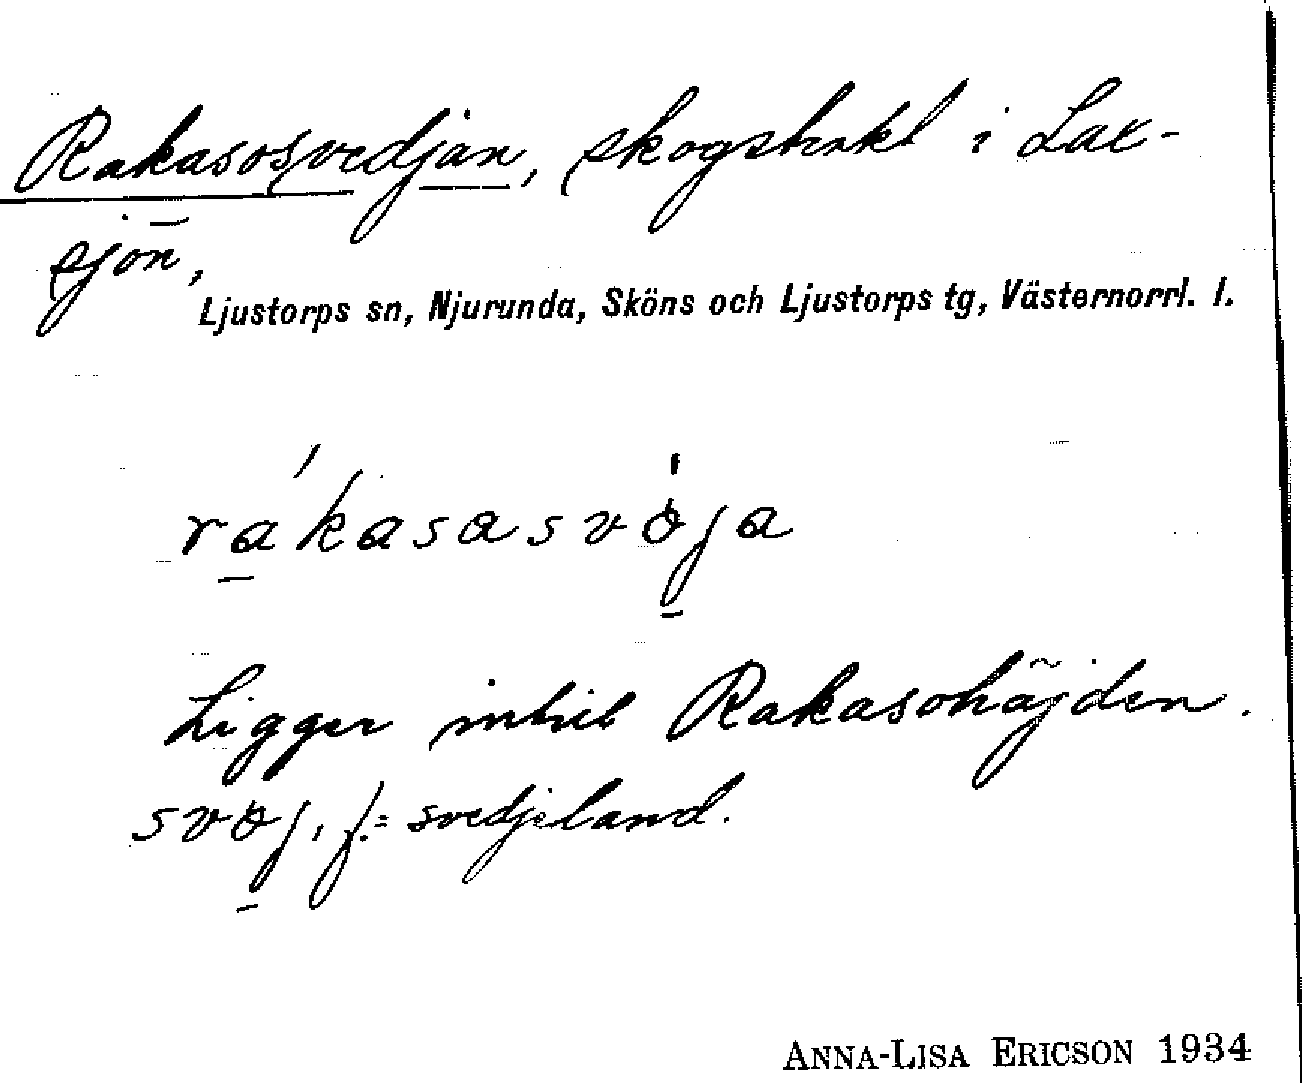 Rakasosvedjan, skogstrakt i Lax-
sjön,
Ljustorps sn, Njurunda, Sköns och Ljustorps tg, Västernorrl. l.
rakasasvöja
Ligger intill Rakasohöjden.
svöj, f. = svedjeland.
ANNA-LISA ERICSON 1934